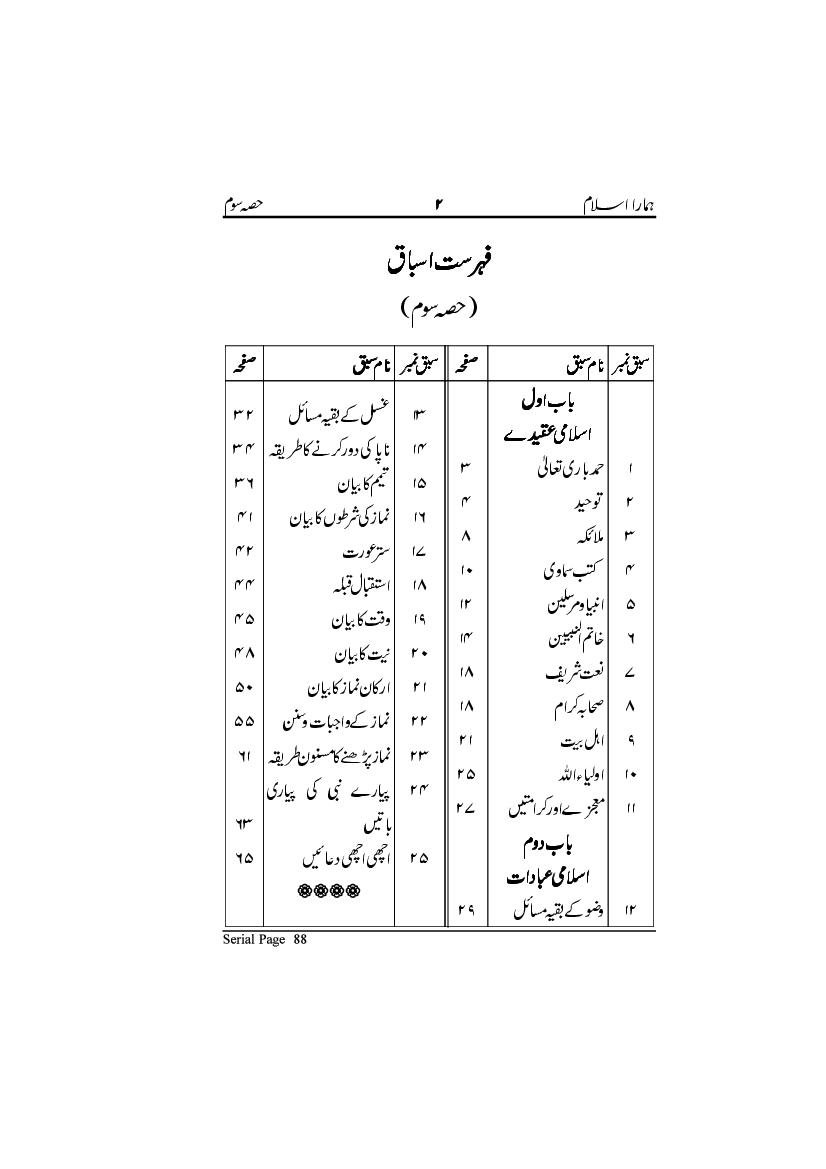 ہمارا اسلام ۲ حصہ سوم
فہرست اسباق
(حصہ سوم)
سبق نمبر نام سبق صفحہ
باب اول
اسلامی عقیدے
۱ حمد باری تعالیٰ ۳
۲ توحید ۴
۳ ملائکہ ۸
۴ کتب سماوی ۱۰
۵ انبیا و مرسلین ۱۲
۶ خاتم النبیین ۱۴
۷ نعت شریف ۱۸
۸ صحابہ کرام ۱۸
۹ اہل بیت ۲۱
۱۰ اولیاء اللہ ۲۵
۱۱ معجزے اور کرامتیں ۲۷
باب دوم
اسلامی عبادات
۱۲ وضو کے بقیہ مسائل ۲۹
سبق نمبر نام سبق صفحہ
۱۳ غسل کے بقیہ مسائل ۳۲
۱۴ ناپاکی دور کرنے کا طریقہ ۳۴
۱۵ تیمم کا بیان ۳۶
۱۶ نماز کی شرطوں کا بیان ۴۱
۱۷ ستر عورت ۴۲
۱۸ استقبال قبلہ ۴۴
۱۹ وقت کا بیان ۴۵
۲۰ نیت کا بیان ۴۸
۲۱ ارکان نماز کا بیان ۵۰
۲۲ نماز کے واجبات و سنن ۵۵
۲۳ نماز پڑھنے کا مسنون طریقہ ۶۱
۲۴ پیارے نبی کی پیاری
باتیں ۶۳
۲۵ اچھی اچھی دعائیں ۶۵
Serial Page 88